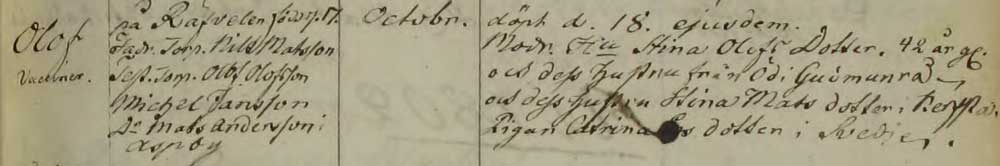 Olof
Vacciner.
på Räfvelen född 17.
Fadr. Torp. Nils Matsson
Test. Torp. Olof Olofsson
Michel Jansson
Dr. Mats Andersson i
Aspöy
Octobr.
döpt d. 18. ejusdem.
Modr. Hu Stina Olofs Dotter. 42 år gl.
och dess hustru från Ödi Gudmunrå
och dess hustru Stina Mats dotter i
Pigan Catrina dotter i Svedje.